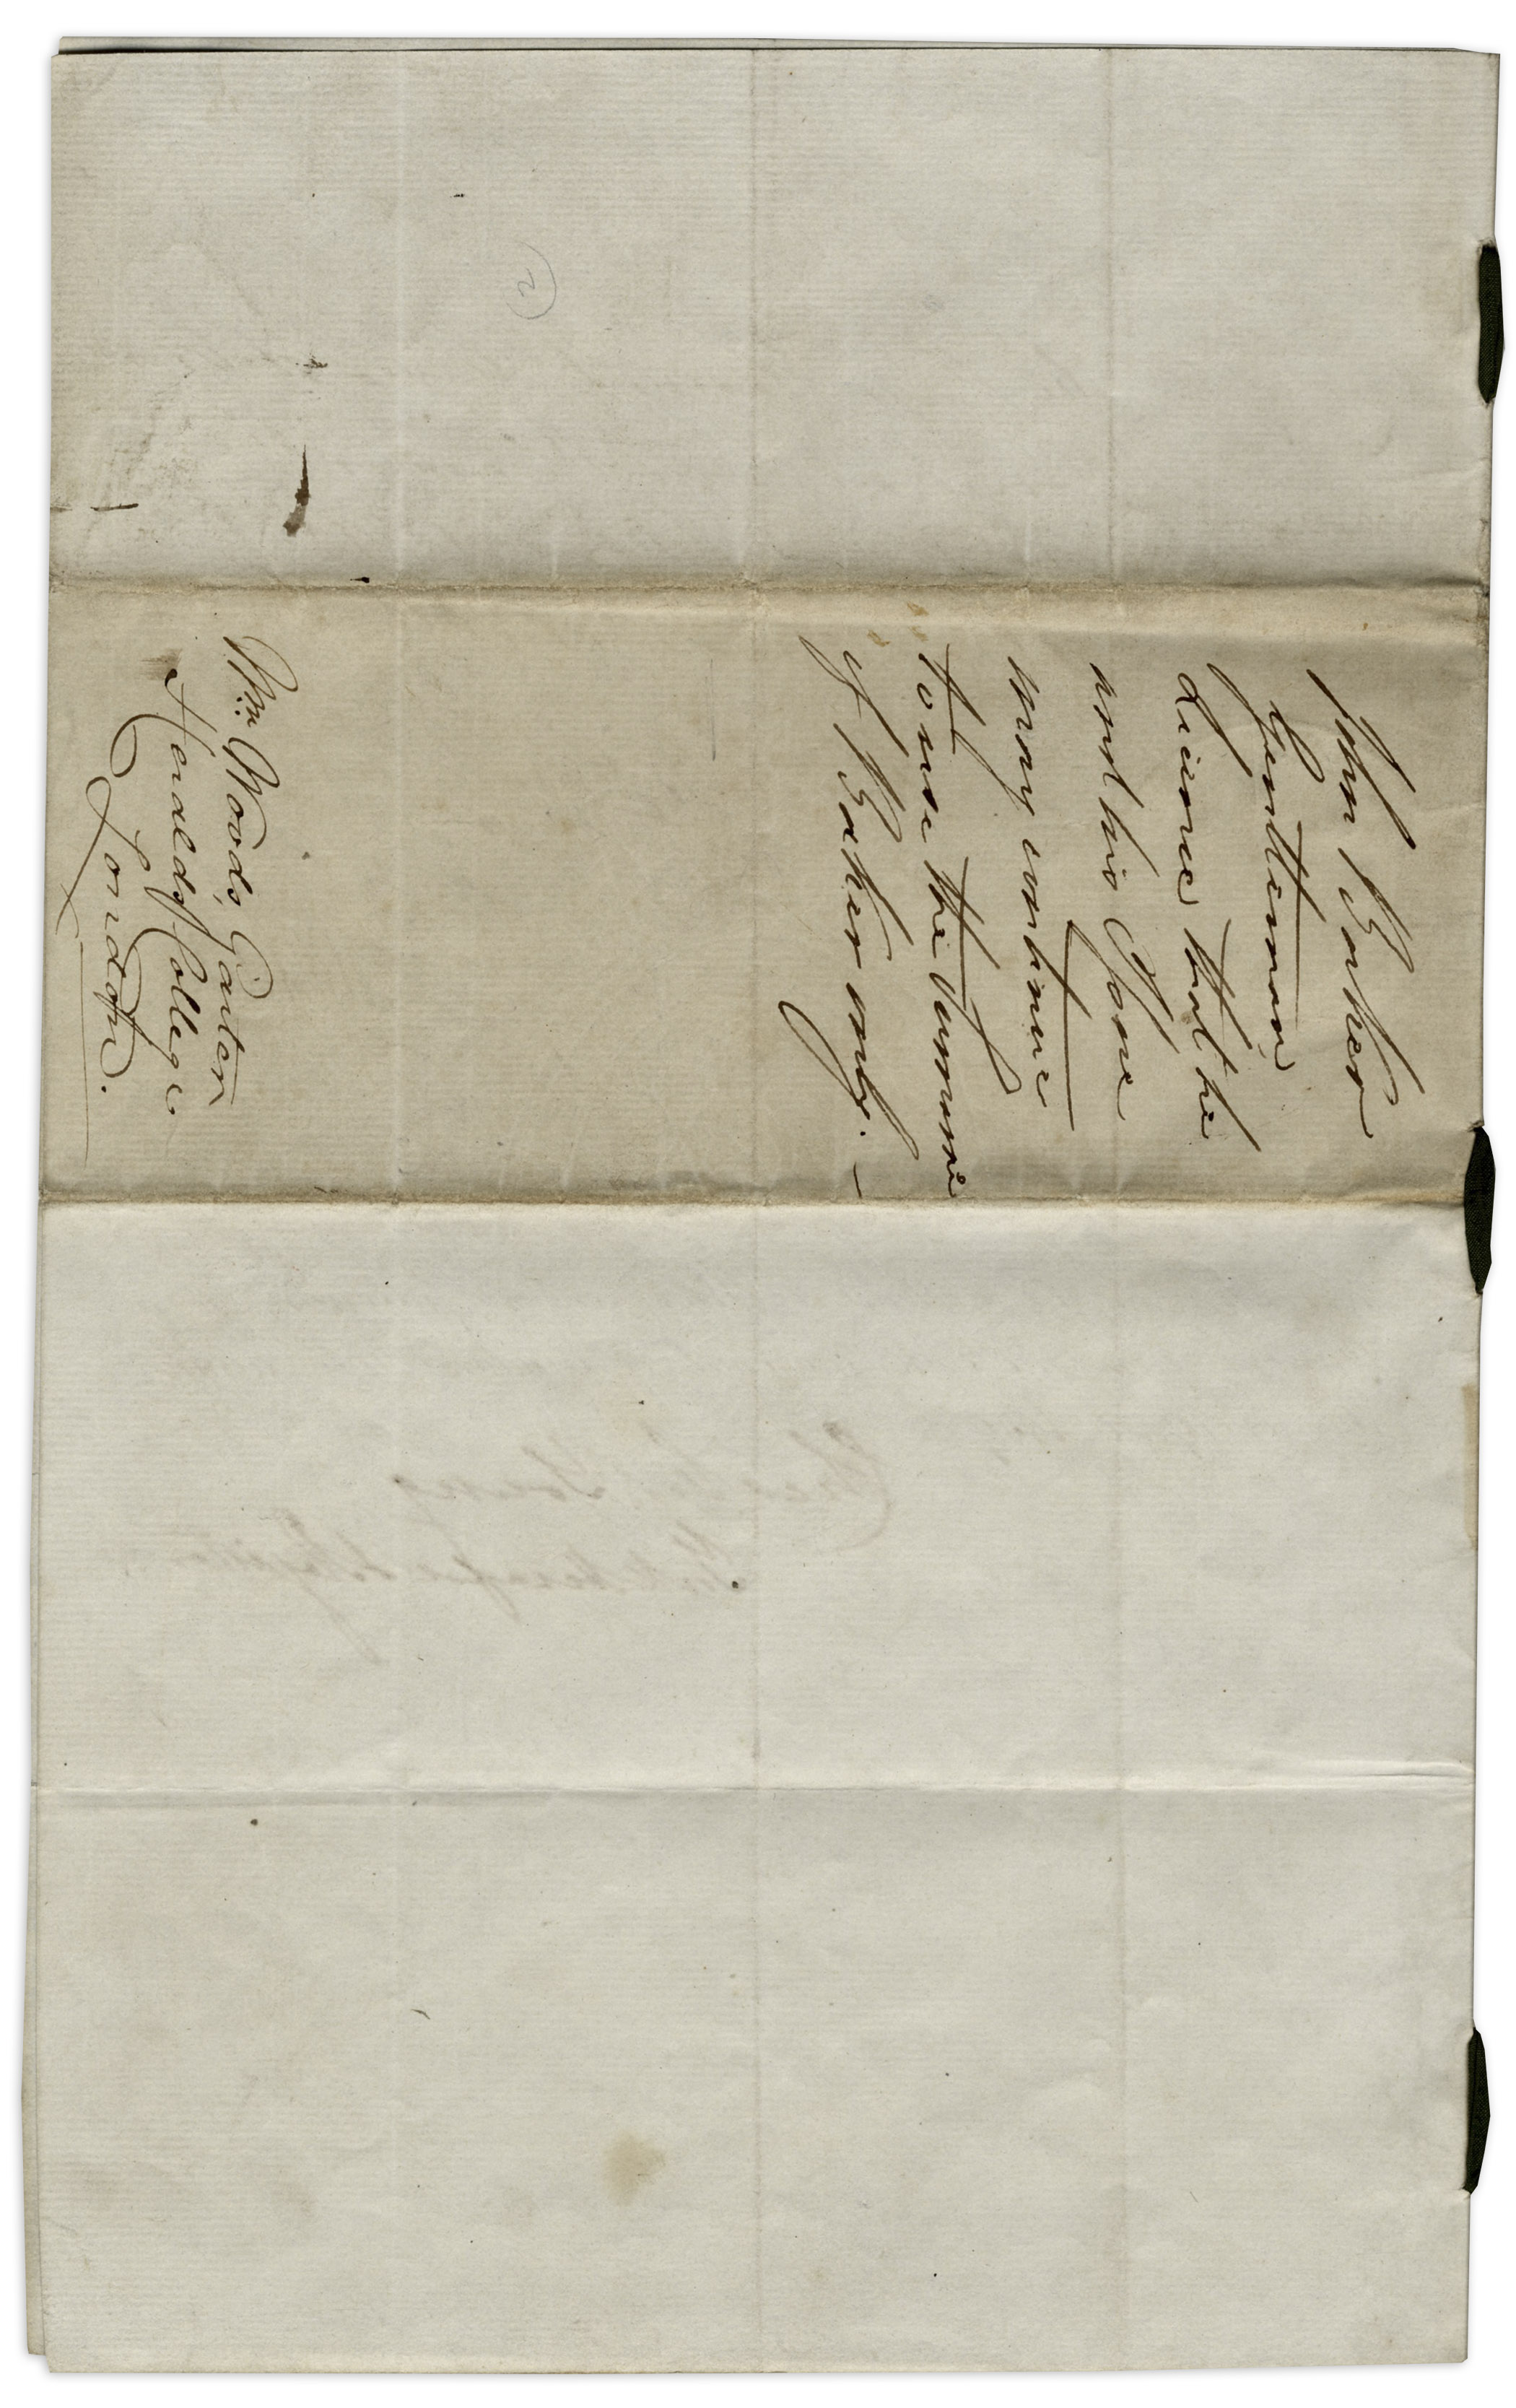 John Baker
Gentleman
Licence that he
and his Issue
may continue
to use the Surname
of Baker only. —
Wm. Woods, Garter
Heralds College
London.
(2)